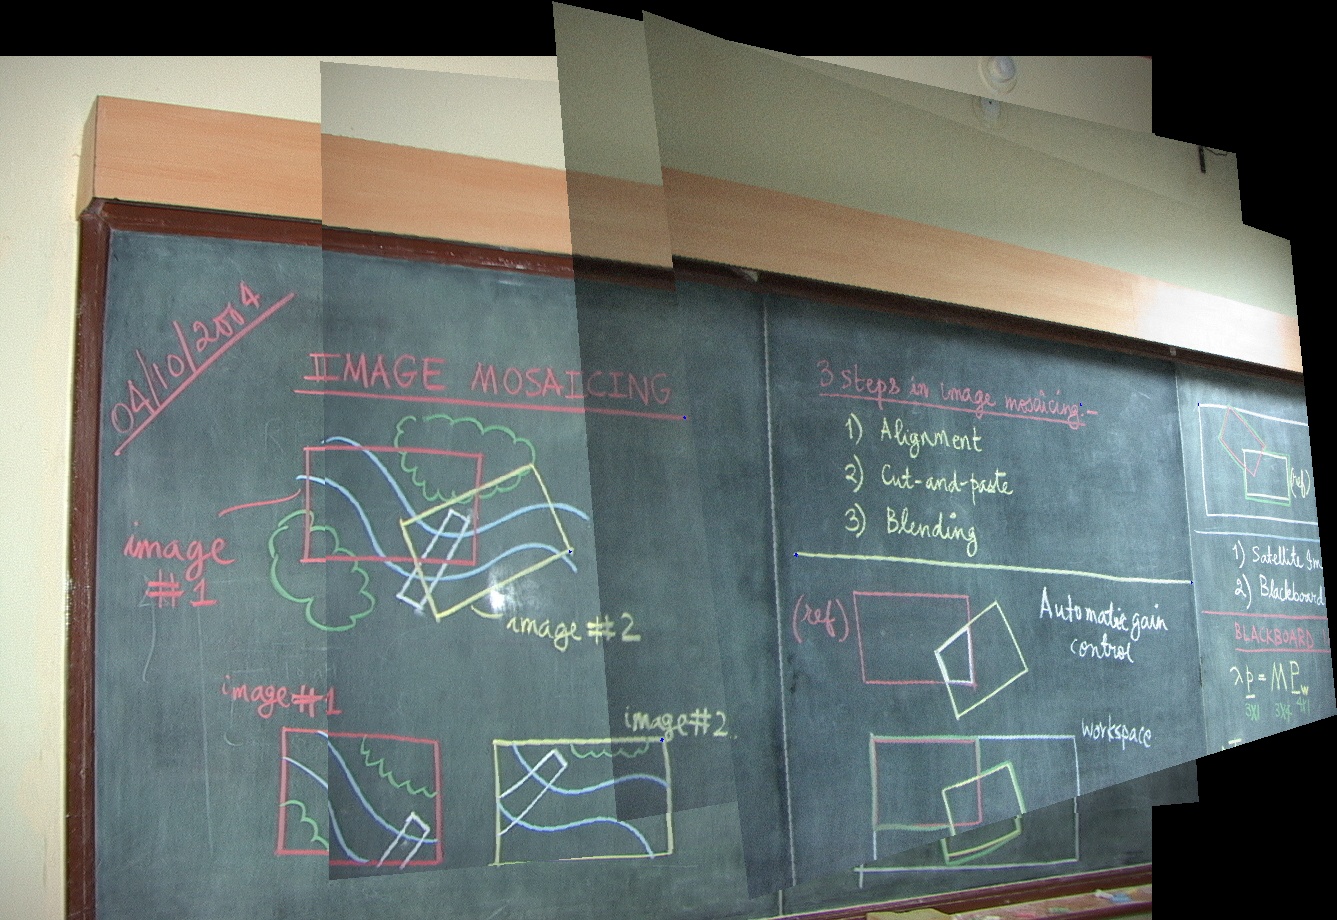 04/10/2004
IMAGE MOSAICING
image
#1
image #2
image #1
image #2
3 steps in image mosaicing:-
1) Alignment
2) Cut-and-paste
3) Blending
(ref)
Automatic gain
control
workspace
(ref)
1) Satellite Im
2) Blackboard
BLACKBOARD
λp = MPw
3x1 3x4 4x1